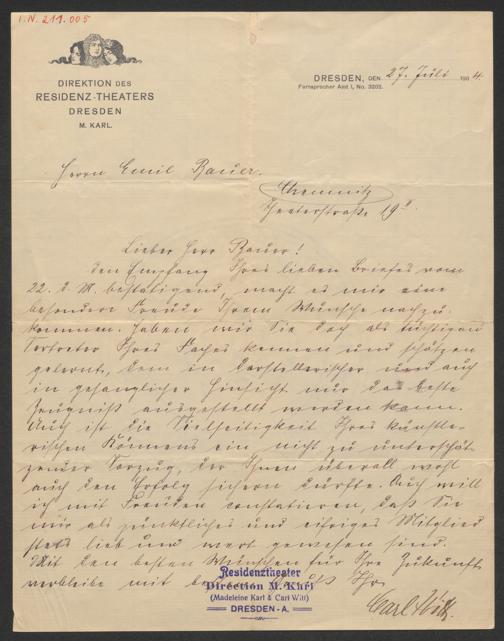 I.N. 211.005
DIREKTION DES
RESIDENZ-THEATERS
DRESDEN
M. KARL.
DRESDEN, DEN 27. Juli 1904.
Fernsprecher Amt I, No. 3202.
Herrn Emil Bauer.
Chemnitz
Theaterstraße 19 II.
Lieber Herr Bauer!
den Empfang Ihres lieben Briefes vom
22. d. M. bestätigend, macht es mir eine
besondere Freude Ihrem Wunsche nachzu-
kommen. Haben wir Sie doch als tüchtigen
Vertreter Ihres Faches kennen und schätzen
gelernt, dem in darstellerischer und auch
in gesanglicher Hinsicht nur das beste
Zeugniß ausgestellt werden kann.
Auch ist die Vielseitigkeit Ihres künstle-
rischen Könnens ein nicht zu unterschät-
zender Vorzug, der Ihnen überall wohl
auch den Erfolg sichern dürfte. Auch will
ich mit Freuden constatieren, daß Sie
mir als pünktliches und eifriges Mitglied
stets lieb und wert gewesen sind.
Mit den besten Wünschen für Ihre Zukunft
verbleibe mit Ihr
Residenztheater
Direction M. Karl
(Madeleine Karl & Carl Witt)
DRESDEN-A.
Carl Witt.